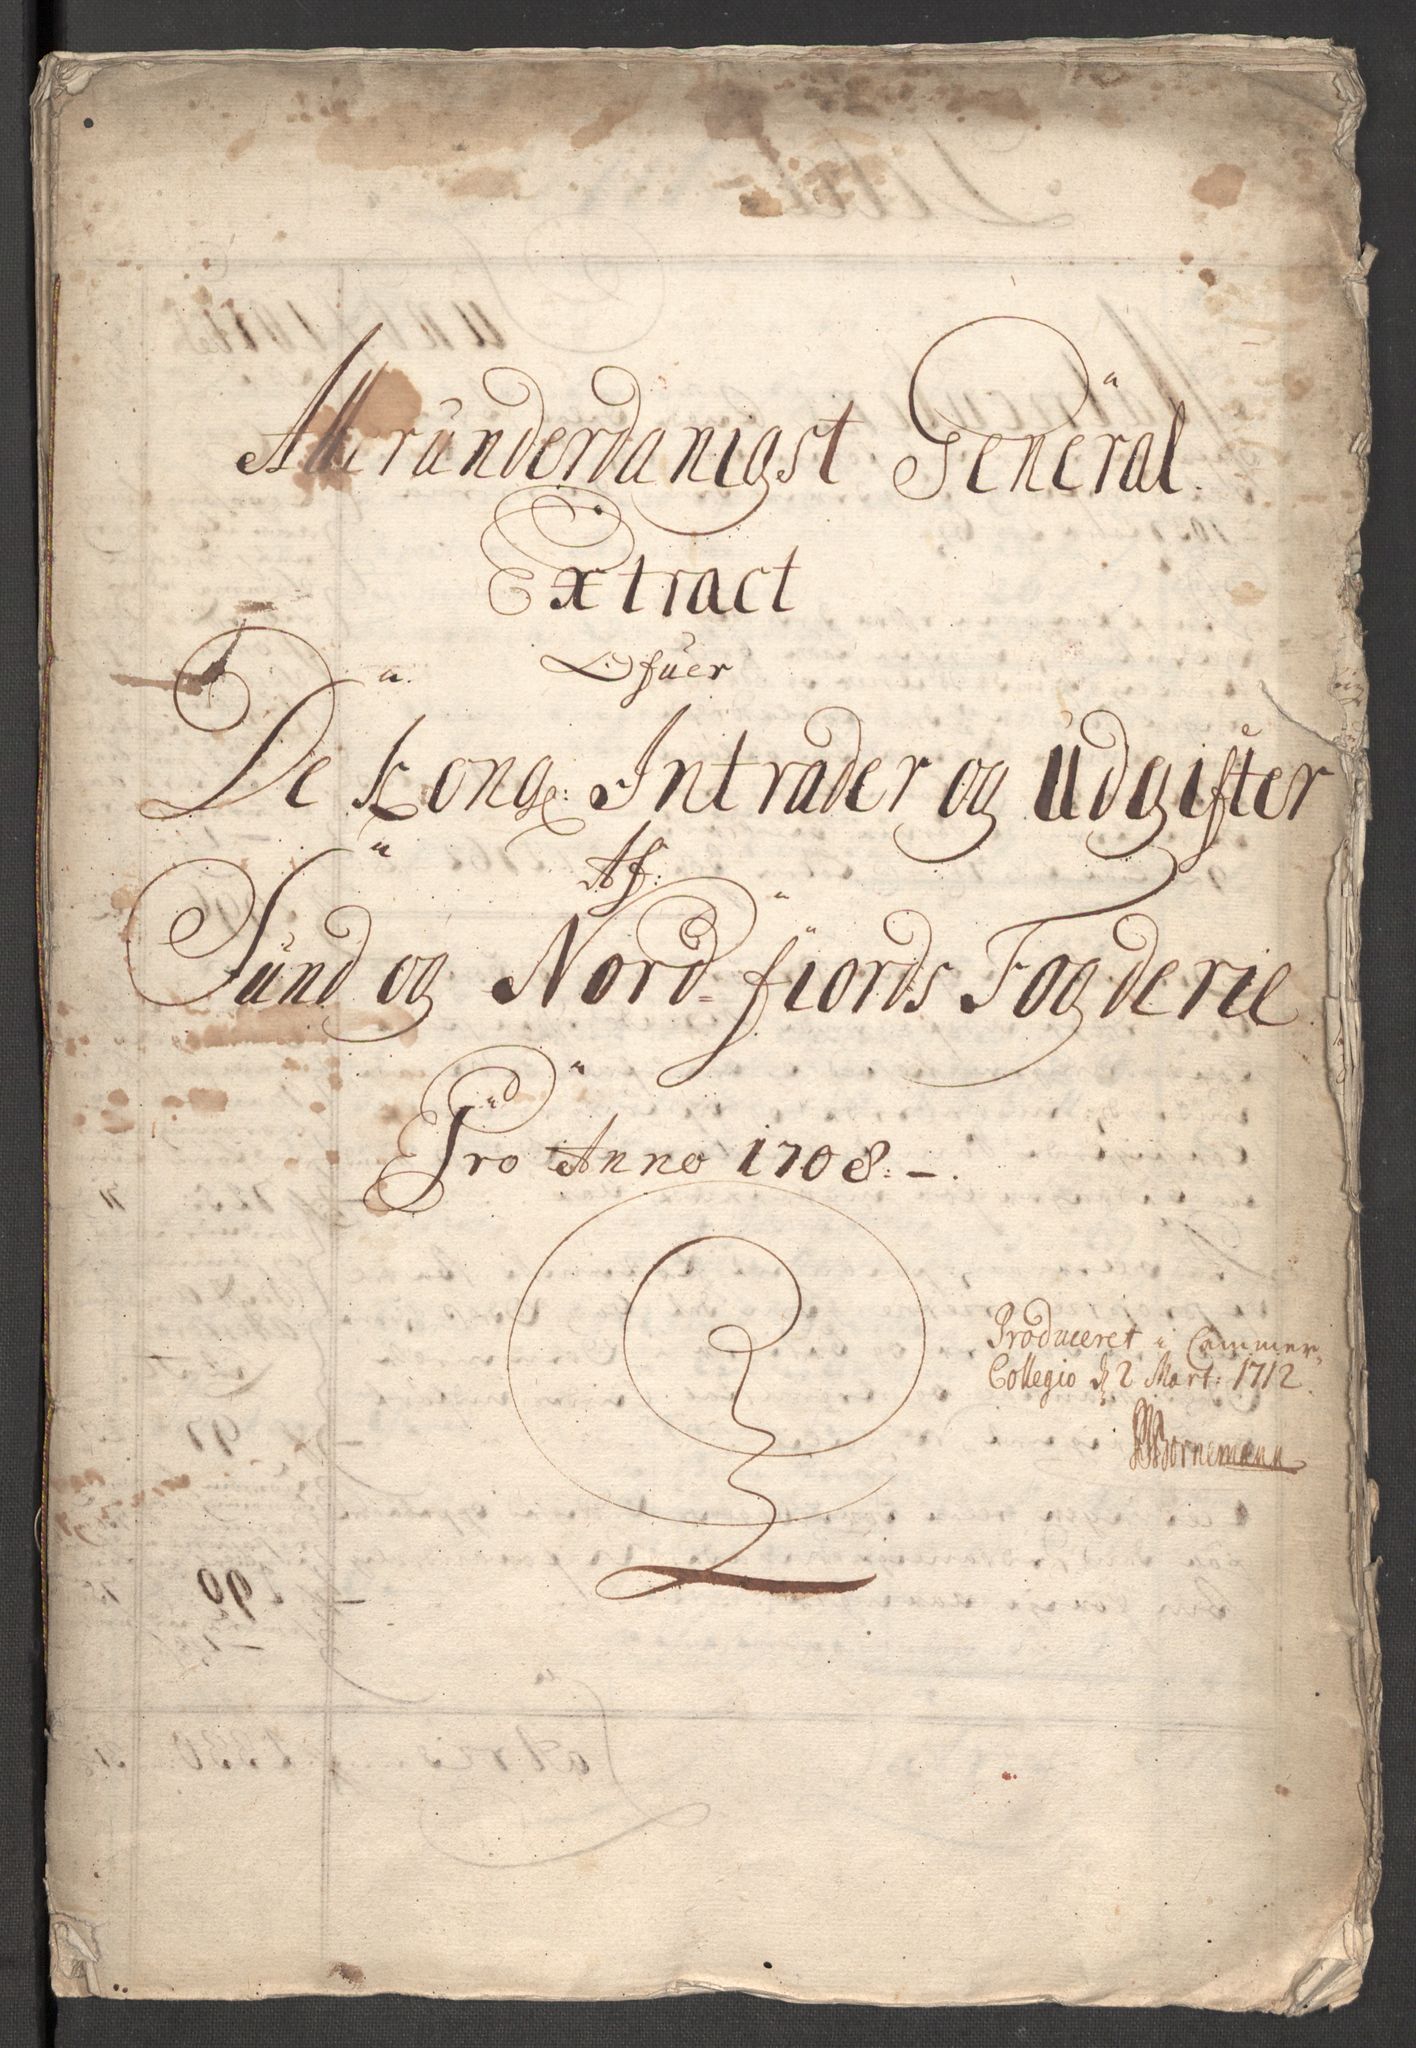 Allerunderdanigst General
Extract
Ofuer
De Kong: Intrader og Udgifter
Af:
Sund og Nord-fiords Fogderie
Pro Anno 1708. –.
Produceret i Cammer-
Collegio d 2 Mart: 1712.
Bornemann